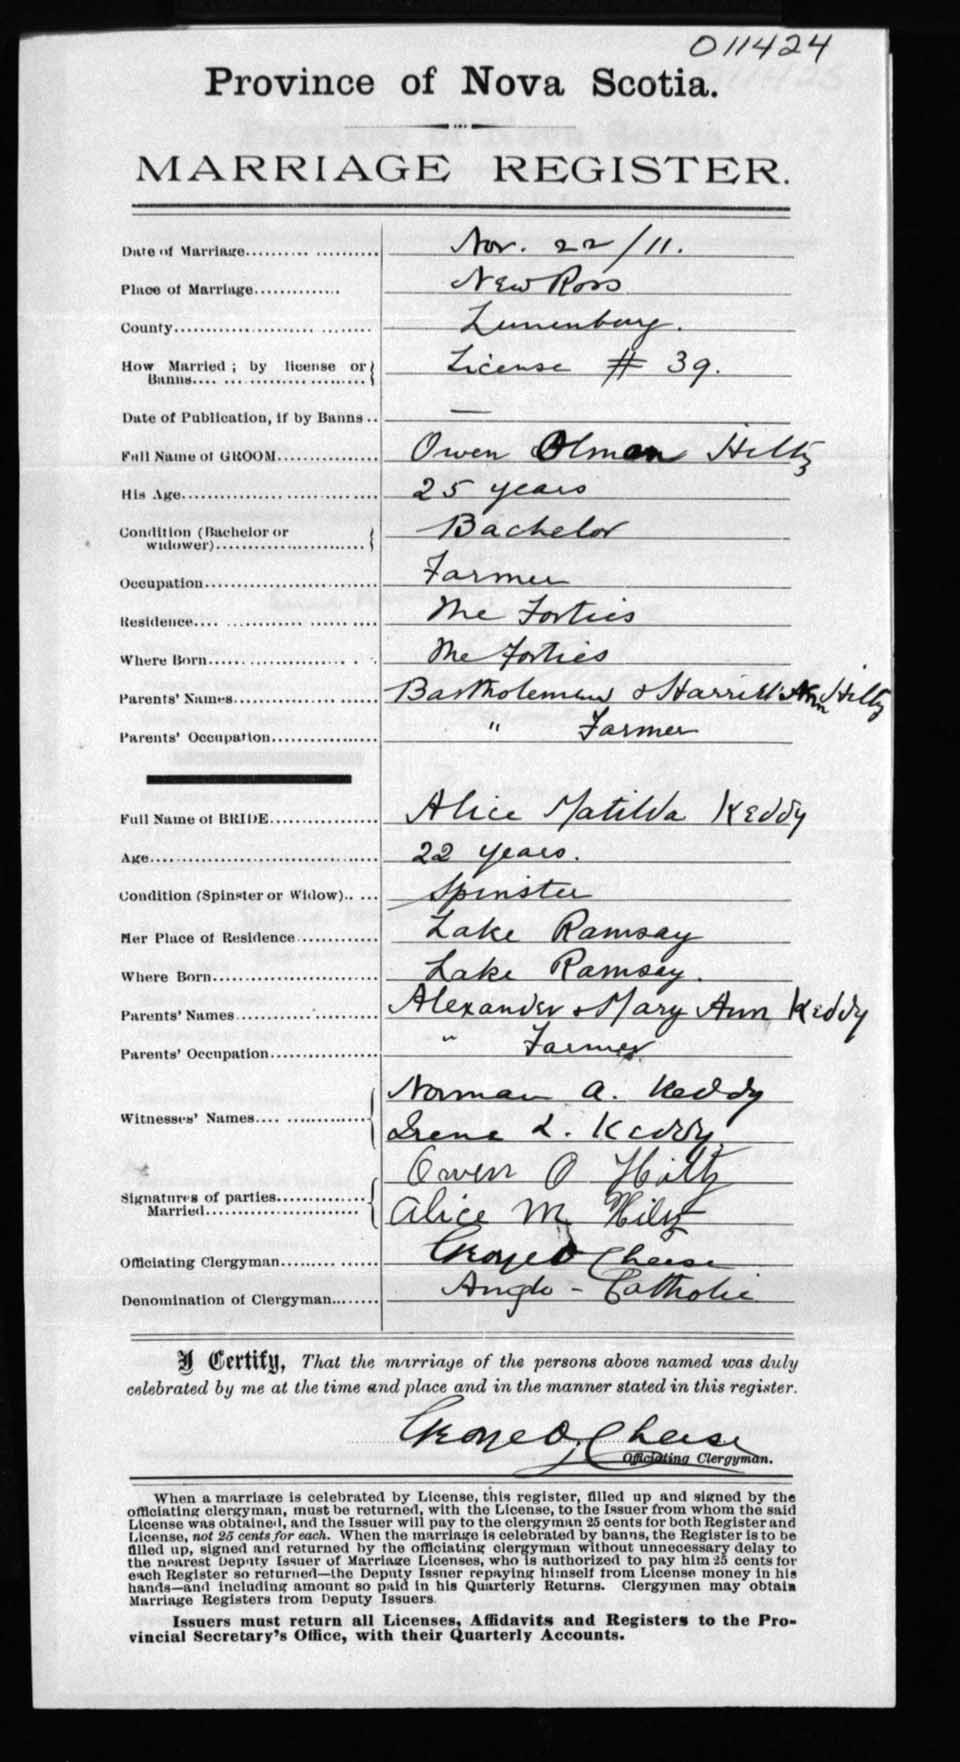 011424
Province of Nova Scotia.
MARRIAGE REGISTER.
Date of Marriage.......... .......... Nov. 22/11.
Place of Marriage.............. New Ross
County....................... ........ Lunenburg.
How Married ; by license or License # 39.
Banns.... ... ....................
Date of Publication, if by Banns .. —
Full Name of GROOM............... Owen Olman Hiltz
His Age............................... 25 years
Condition (Bachelor or Bachelor
widower)........................
Occupation........................... Farmer
Residence.... ........... ...... ...... The Forties
Where Born..................... . . The Forties
Parents' Names................ ...... Bartholemew & Harriett Ann Hiltz
Parents' Occupation................ " Farmer
Full Name of BRIDE................ Alice Matilda Keddy
Age.................................... 22 years.
Condition (Spinster or Widow).. ... Spinster
Her Place of Residence............ Lake Ramsay
Where Born......................... Lake Ramsay.
Parents' Names..................... Alexander & Mary Ann Keddy
Parents' Occupation................ " Farmer
Witnesses' Names.... ............. Norman A. Keddy
Irene L. Keddy
Signatures of parties............. Owen O Hiltz
Married....................... Alice M Hiltz
Officiating Clergyman......... ...... George D Cheese
Denomination of Clergyman....... Anglo - Catholic
I Certify, That the marriage of the persons above named was duly
celebrated by me at the time and place and in the manner stated in this register.
George D Cheese
Officiating Clergyman.
When a marriage is celebrated by License, this register, filled up and signed by the
officiating clergyman, must be returned, with the License, to the Issuer from whom the said
License was obtained, and the Issuer will pay to the clergyman 25 cents for both Register and
License, not 25 cents for each. When the marriage is celebrated by banns, the Register is to be
filled up, signed and returned by the officiating clergyman without unnecessary delay to
the nearest Deputy Issuer of Marriage Licenses, who is authorized to pay him 25 cents for
each Register so returned—the Deputy Issuer repaying himself from License money in his
hands—and including amount so paid in his Quarterly Returns. Clergymen may obtain
Marriage Registers from Deputy Issuers.
Issuers must return all Licenses, Affidavits and Registers to the Pro-
vincial Secretary's Office, with their Quarterly Accounts.